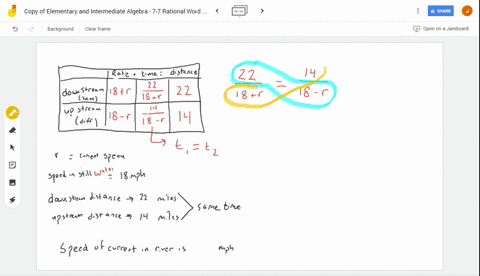 Copy of Elementary and Intermediate Algebra - 7-7 Rational Word ...
SHARE
Background
Clear frame
Open on a Jamboard
Rate • time = distance
downstream (sum) 18+r 22/18+r 22
up stream (diff) 18-r 14/18-r 14
22/18+r = 14/18-r
t₁ = t₂
r = current speed
speed in still water = 18 mph
downstream distance → 22 miles
upstream distance → 14 miles
same time
Speed of current in river is mph